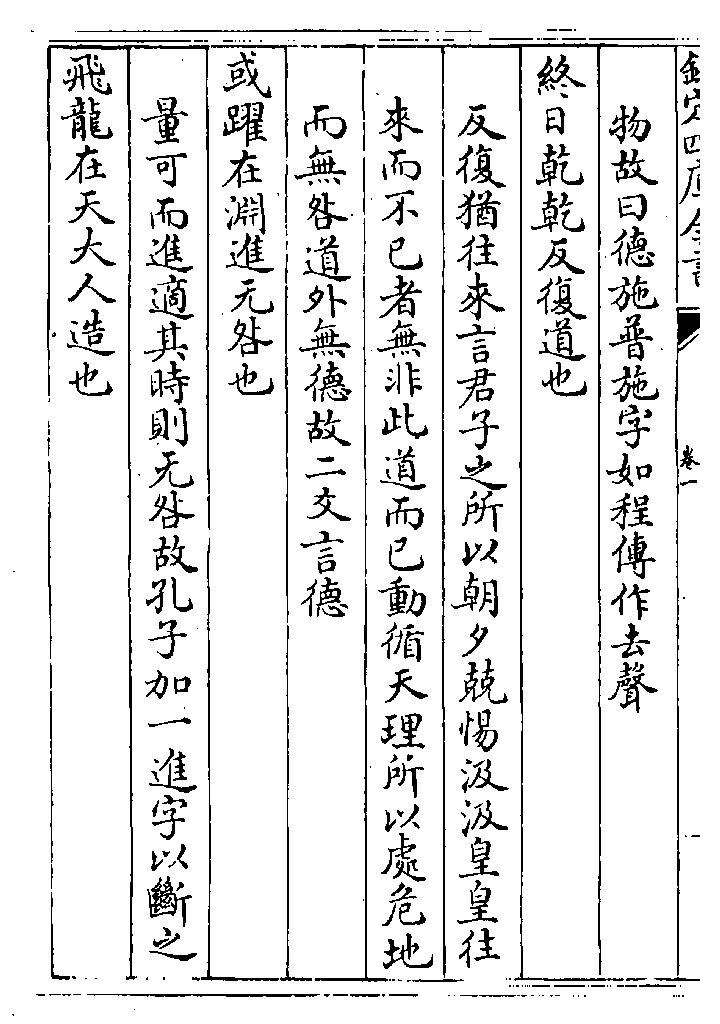 欽定四庫全書
卷一
物故曰德施普施字如程傳作去聲
終日乾乾反復道也
反復猶往來言君子之所以朝夕兢惕汲汲皇皇往
來而不已者無非此道而已動循天理所以處危地
而無咎道外無德故二爻言德
或躍在淵進无咎也
量可而進適其時則无咎故孔子加一進字以斷之
飛龍在天大人造也